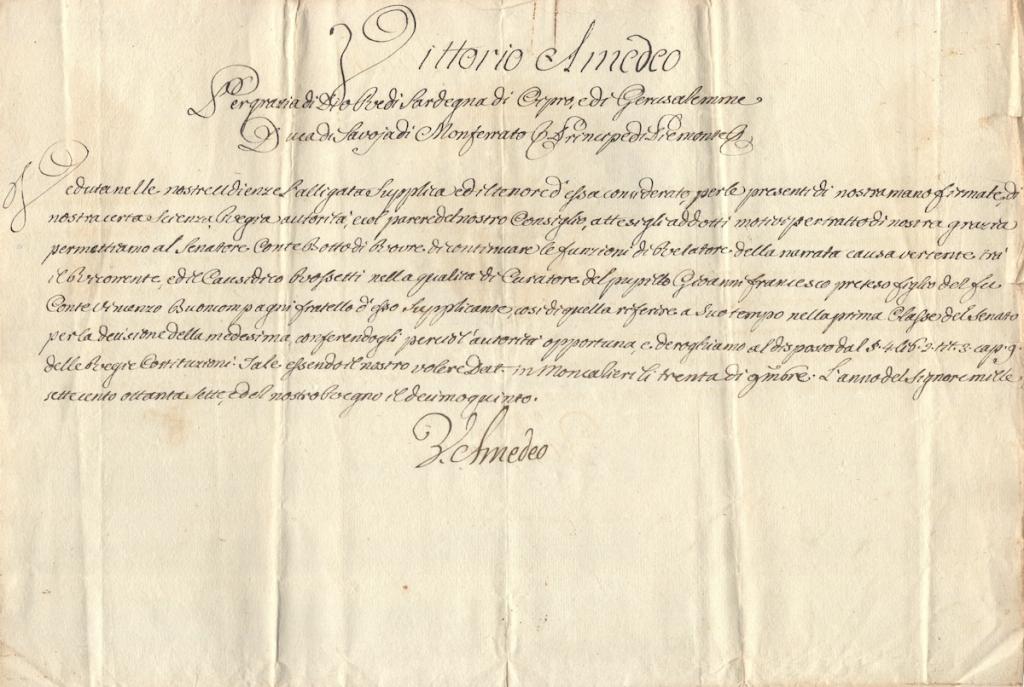 Vittorio Amedeo
Per grazia di Dio Re di Sardegna di Cipro, e di Gerusalemme
Duca di Savoja di Monferrato &. Principe di Piemonte &.
Veduta nelle nostre Udienze l'alligata Supplica, ed il tenore d'essa considerato, per le presenti di nostra mano firmate, di
nostra certa Scienza, Regia autorità, e col parere del nostro Consiglio, attesi gli addotti motivi per tratto di nostra grazia
permettiamo al Senatore Conte Botto di Rovre di continuare le funzioni di Relatore della narrata causa vertente trà
il Ricorrente, ed il Causidico Rossetti nella qualità di Curatore del pupillo Giovanni Francesco preteso figlio del fu
Conte Vinanzo Buoncompagni fratello d'esso Supplicante, così di quella riferire a suo tempo nella prima Classe del Senato
per la decisione della medesima, conferendogli perciò l'autorità opportuna, e deroghiamo al disposto dal §. 4. lib. 2. tit. 3. cap. 9.
delle Regie Costituzioni. Tale essendo il nostro volere Dat. in Moncalieri li trenta di 9mbre. L'anno del Signore mille
settecento ottanta sette, e del nostro Regno il decimoquinto.
V. Amedeo